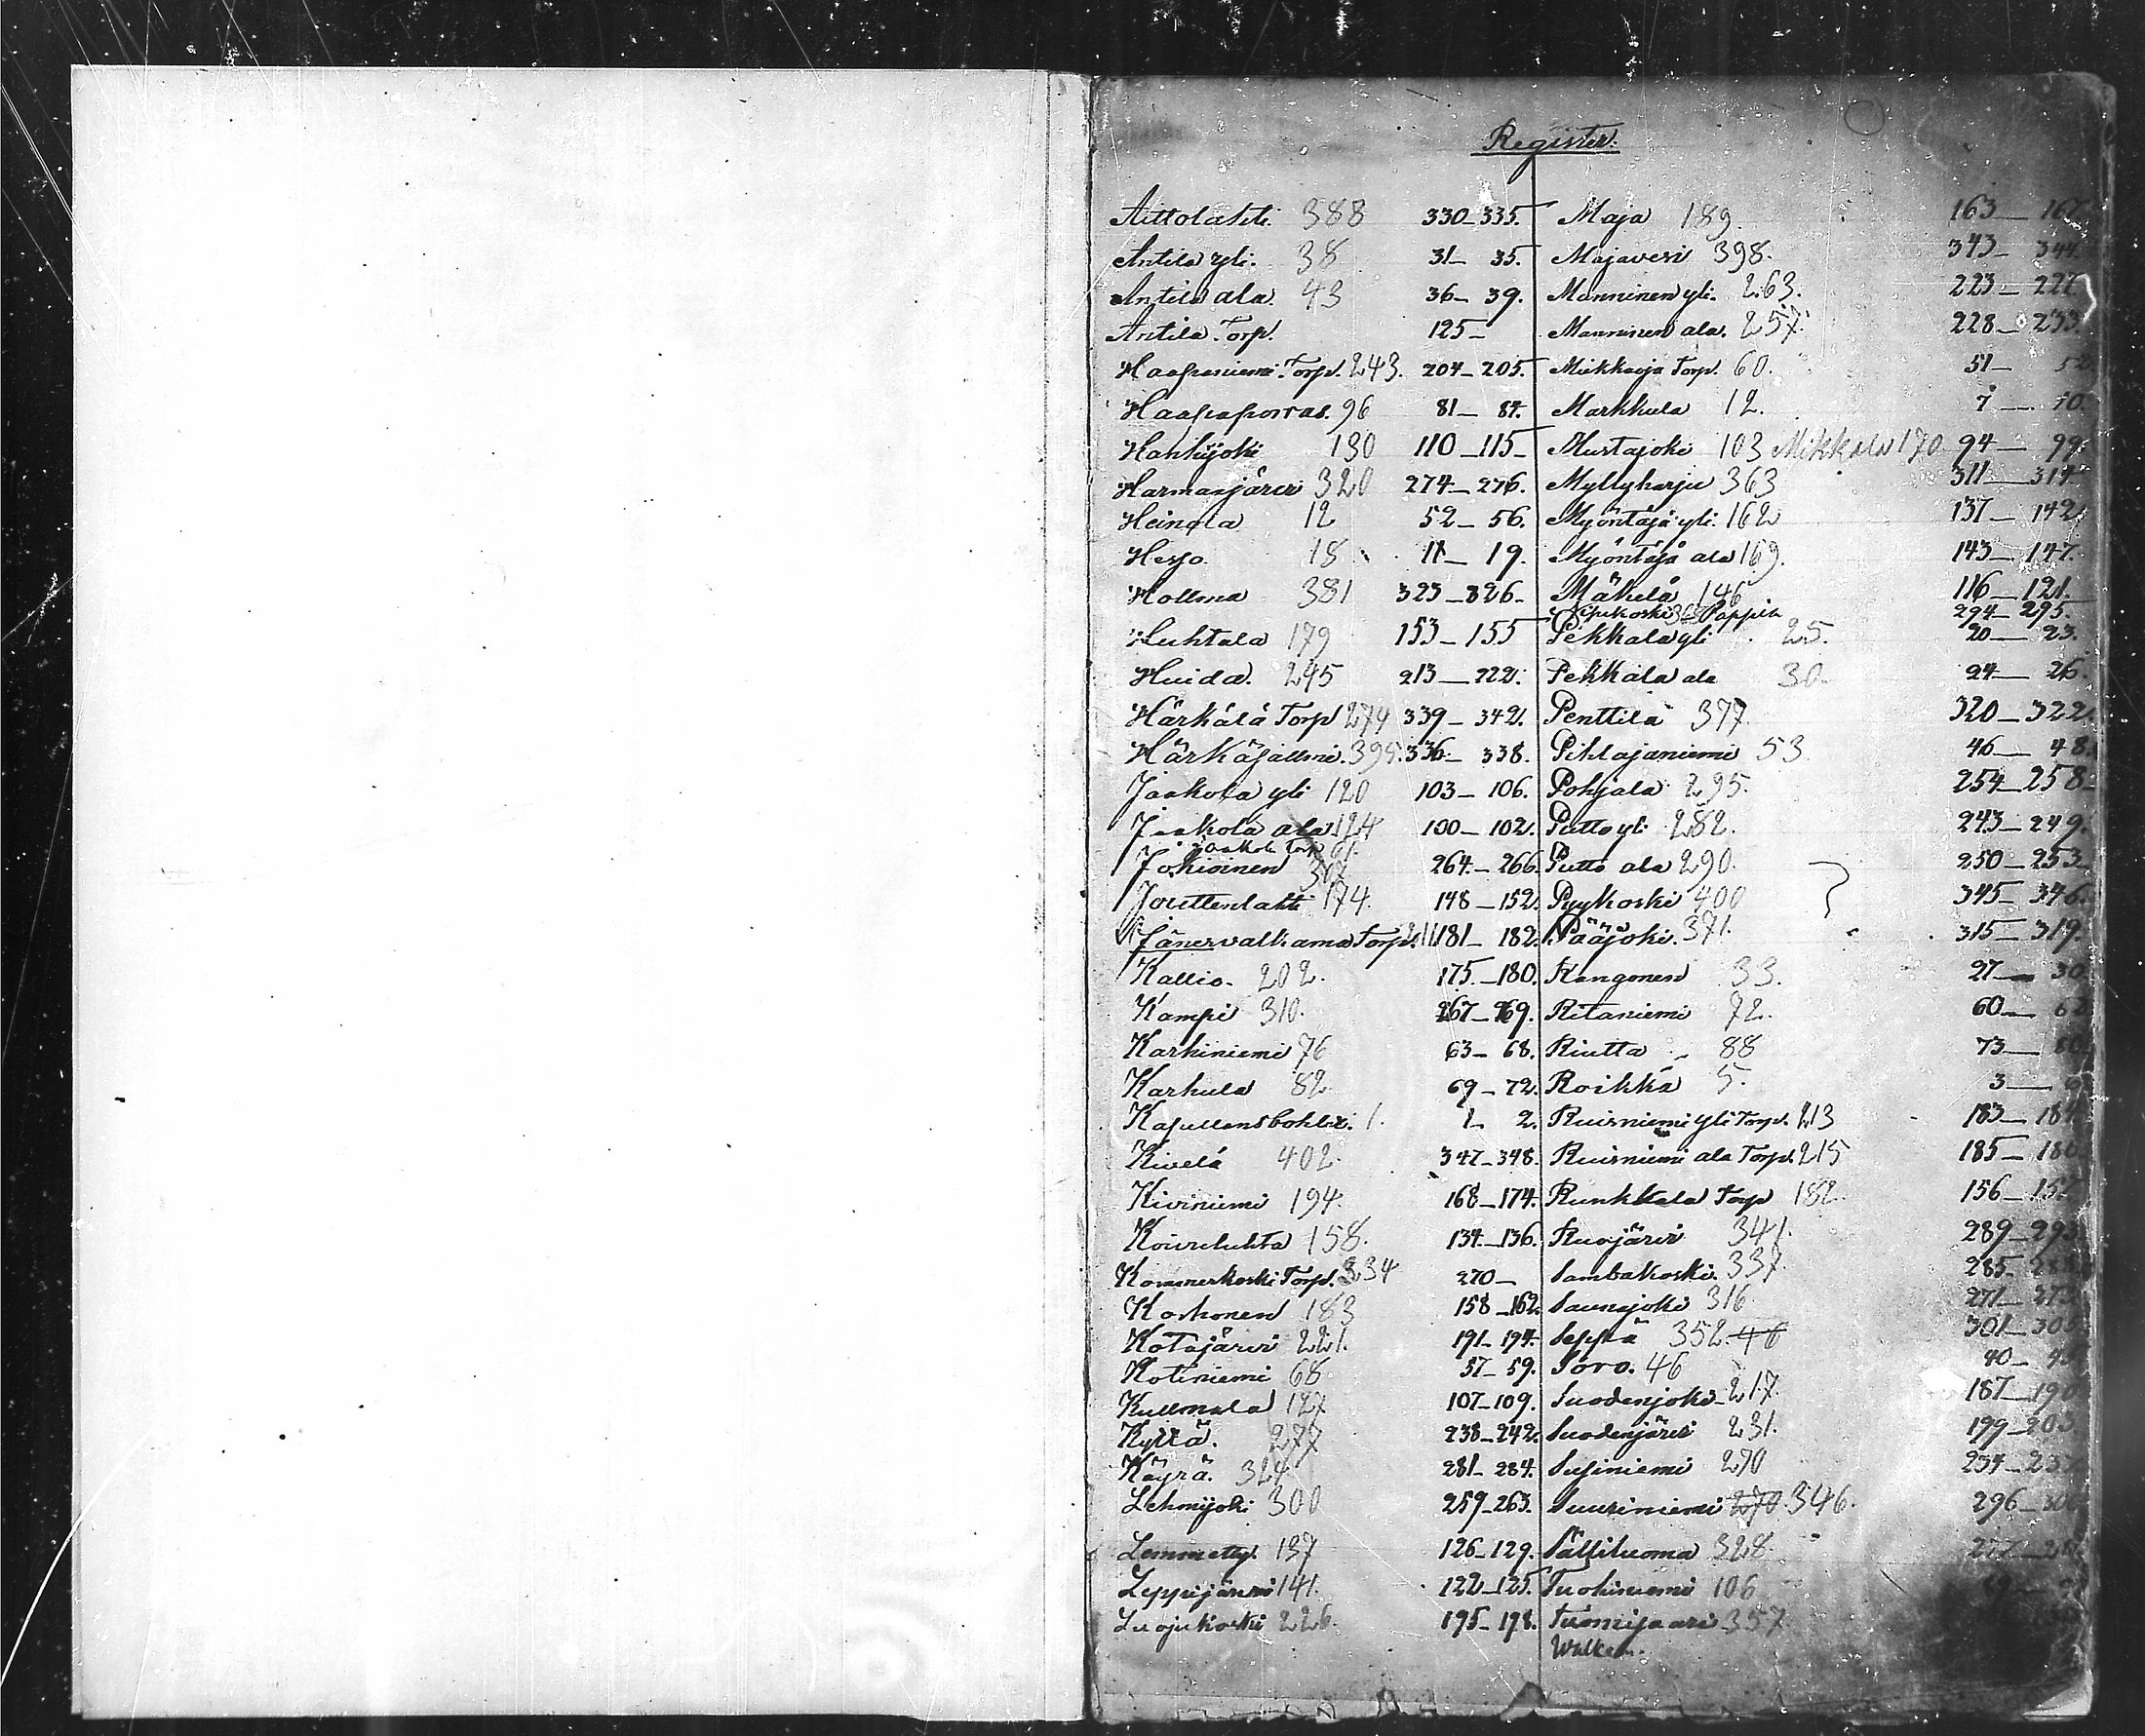 Register.
Aittolahti. 388 330-335.
Antila yli. 38 31- 35.
Antila ala. 43 36- 39.
Antila Torp. 125-
Haapaniemi Torp. 243. 204-205.
Haapaporras. 96 81- 84.
Hankijoki 130 110-115-
Harmaajärvi 320 274-276.
Heinola 12 52- 56.
Hesjo. 18 11- 19.
Hollma 381 323-326-
Huhtala 179 153-155
Huida. 245 213-222.
Härkälä Torp 274 339-342.
Härkäsalmi. 395. 336- 338.
Jaakola yli 120 103- 106.
Jaakola ala 124 100- 102.
Jaakola Torp 61.
Jokioinen 307 264-266.
Jouttenlahti 174. 148-152.
Jänesvalkama Torp. 211 181- 182.
Kallio. 202. 175.-180.
Kampi 310. 267-269.
Karhiniemi 76 63- 68.
Karhula 82 69-72.
Kapellansbohlet. 1. 1- 2.
Kivelä 402. 347-348.
Kiviniemi 194. 168-174.
Koiveluhta 158. 134-136.
Kommerkoski Torp. 334 270-
Korhonen 183 158-162.
Kotajärvi 221. 191-194.
Kotiniemi 68 57- 59.
Kullmala 127 107-109.
Kyttä. 277 238-242.
Käyrä. 324 281- 284.
Lehmijoki 300 259-263.
Lemmetty. 137 126-129.
Leppijärvi 141. 122-125.
Luojukoski 226. 195-198.
Maja 189. 163-167.
Majavesi 398. 343- 344.
Manninen yli. 263. 223-227.
Manninen ala. 257. 228-233.
Miekkaoja Torp. 60. 51-
Markkula 12. 7-10.
Mustajoki 103 Mikkala 170 94- 99.
Myllyharju 363 311-314
Myöntäjä yli. 162 137-142.
Myöntäjä ala 169. 143-147.
Mäkelä 146 116-121.
Pappila 294-295.
Pekkala yli 25. 20- 23.
Pekkala ala 30. 24- 26.
Penttilä 377. 320-322.
Pihlajaniemi 53. 46- 48.
Pohjala 295. 254-258-
Putto yli 282. 243-249.
Putto ala 290. 250-253.
Pyykoski 400 345-346.
Pääjoki. 371. 315-319.
Rangonen 33. 27- 30.
Ritaniemi 72. 60- 62
Riutta 88 73- 80
Roikka 5. 3- 6
Ruisniemi yli Torp. 213 183- 184.
Ruisniemi ala Torp. 215 185-186
Runkkala Torp 182. 156-157
Ruojärvi 341. 289-293
Sambakoski. 337. 285-
Saunajoki 316 271-273
Seppä 352. 46 301-305
Sovo. 46 40-
Suodenjoki 217. 187-190
Suodenjärvi 231. 199-203.
Susiniemi 270 234-237
Suuriniemi 270. 346. 296-
Sälliluoma 328.
Tuohiniemi 106
Tuomisaari 357.